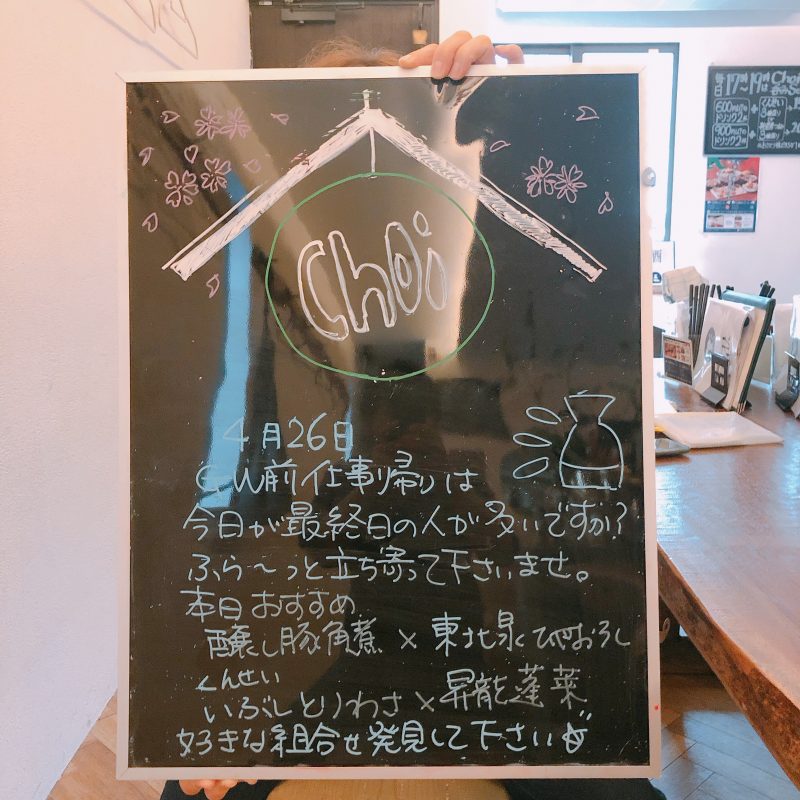 Choi
4月26日
GW前仕事帰りは
今日が最終日の人が多いですか?
ふら～っと立ち寄って下さいませ。
本日おすすめ
醸し豚角煮 × 東北泉ひやおろし
くんせい
いぶしとりわさ × 昇龍蓬莱
好きな組合せ発見して下さい
毎日17時～19時は
600
ドリンク2
900
ドリンク2